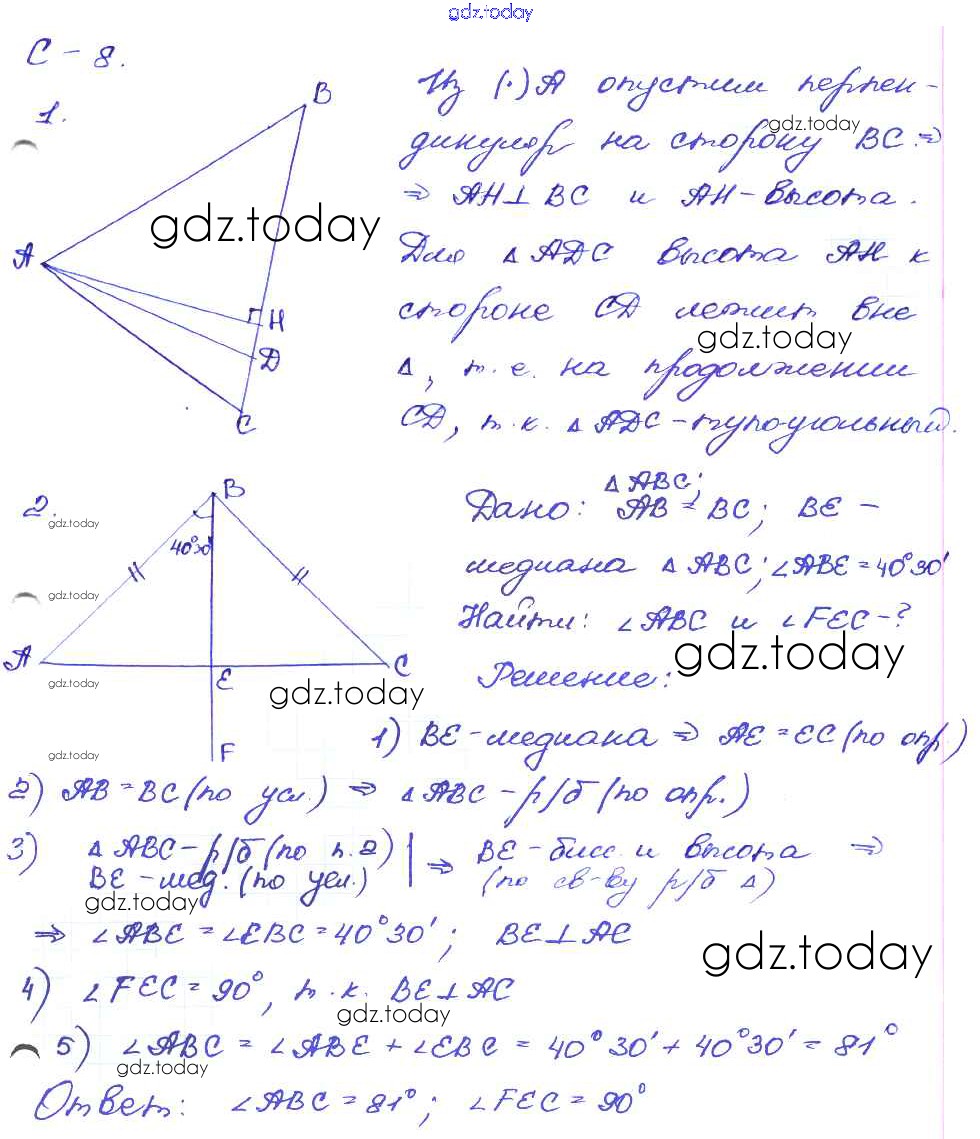 gdz.today
С – 8.
1.
B
A
H
D
C
Из (·) A опустим перпен-
gdz.today
дикуляр на сторону BC ⇒
⇒ AH⊥BC и AH – высота.
gdz.today
Для △ ADC высота AH к
стороне CD лежит вне
gdz.today
△, т.е. на продолжении
CD, т.к. △ ADC – тупоугольный.
2.
gdz.today
B
40°30'
gdz.today
A
E
C
gdz.today
gdz.today
F
gdz.today
Дано: △ ABC; AB = BC; BE –
медиана △ ABC; ∠ABE = 40°30'
Найти: ∠ABC и ∠FEC – ?
gdz.today
Решение:
1) BE – медиана ⇒ AE = EC (по опр.)
2) AB = BC (по усл.) ⇒ △ ABC – р/б (по опр.)
3) △ ABC – р/б (по п. 2) | ⇒ BE – бисс. и высота ⇒
BE – мед. (по усл.) (по св-ву р/б △)
gdz.today
⇒ ∠ABE = ∠EBC = 40°30'; BE⊥AC
gdz.today
4) ∠FEC = 90°, т.к. BE⊥AC
gdz.today
5) ∠ABC = ∠ABE + ∠EBC = 40°30' + 40°30' = 81°
gdz.today
Ответ: ∠ABC = 81°; ∠FEC = 90°